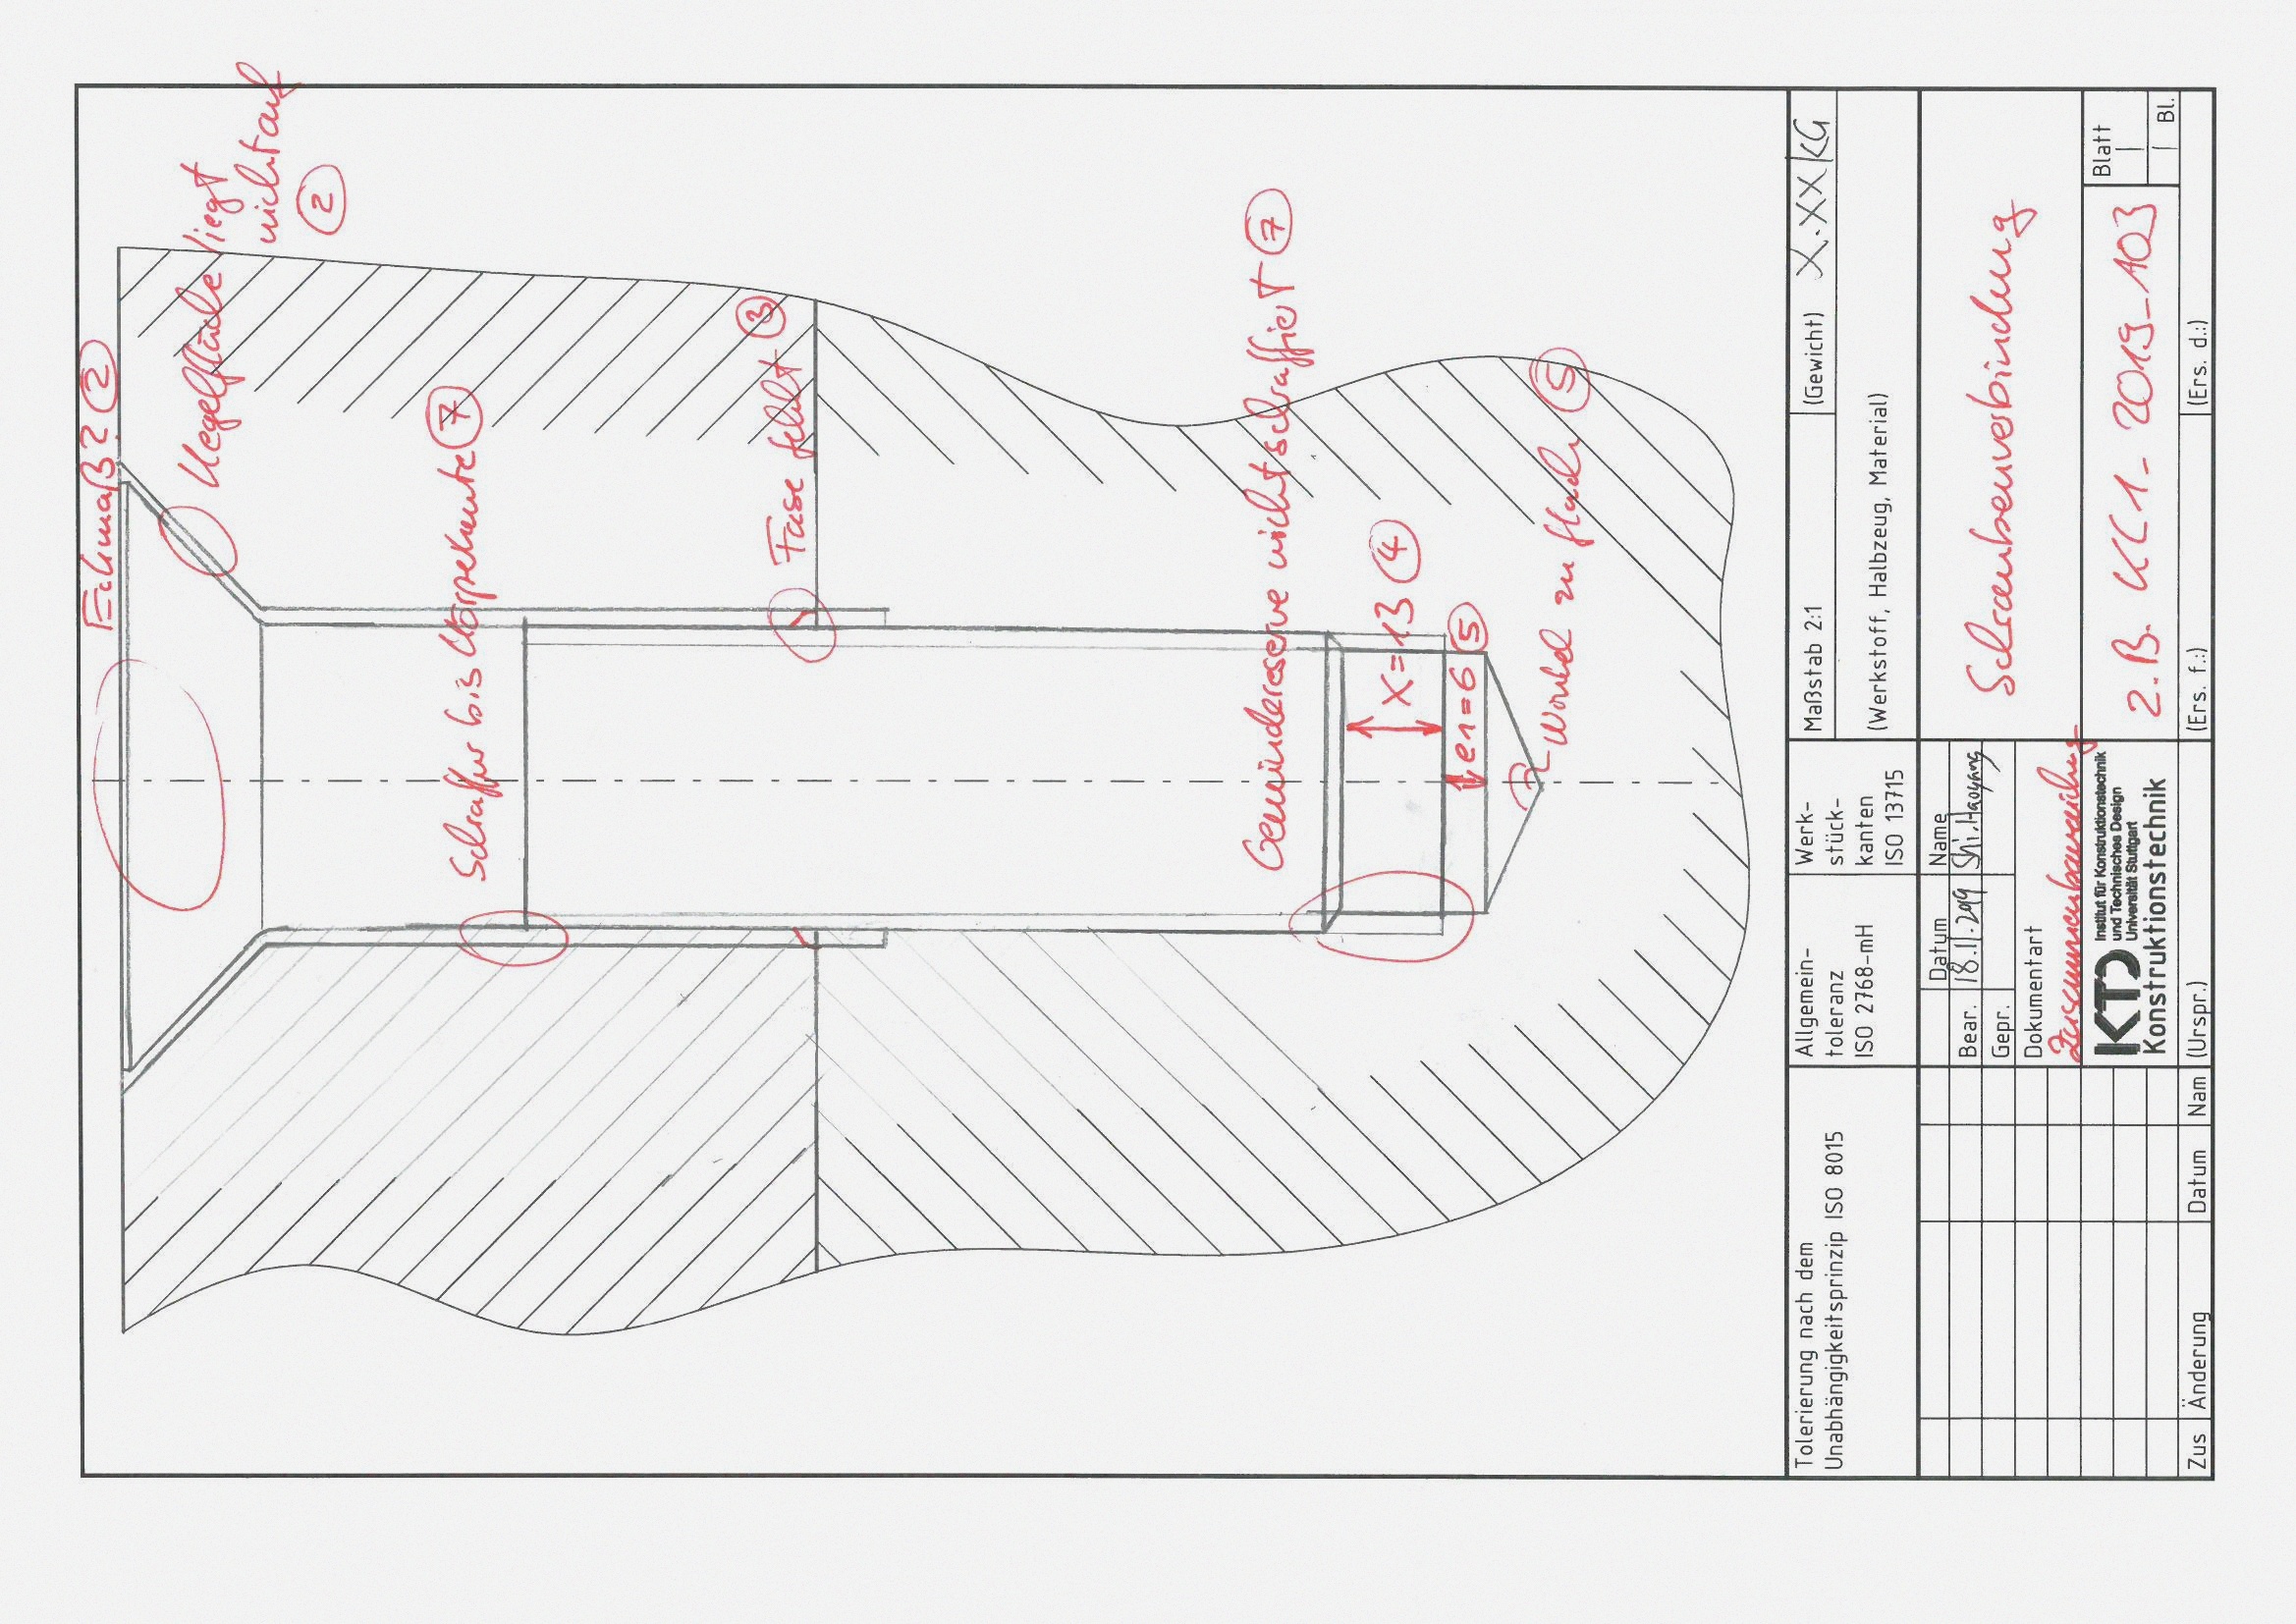 Eckmaß? 2
Kegelfläche liegt
nicht auf
2
Schraffur bis Körperkante 7
Fase fehlt 3
Gewindereserve nicht schraffiert 7
X=13 4
e1=6 5
Winkel zu flach 5
Tolerierung nach dem
Unabhängigkeitsprinzip ISO 8015
Allgemein-
toleranz
ISO 2768-mH
Werk-
stück-
kanten
ISO 13715
Maßstab 2:1
(Gewicht) X.XX KG
(Werkstoff, Halbzeug, Material)
Datum Name
Bear. 18.11.2019 Shi.Haoyang
Gepr.
Dokumentart
Schraubenverbindung
KTD Institut für Konstruktionstechnik
und Technisches Design
Universität Stuttgart
Konstruktionstechnik
z.B. KL1-2019-103
Blatt
1
1 Bl.
Zus Änderung Datum Nam (Urspr.) (Ers. f.:) (Ers. d.:)